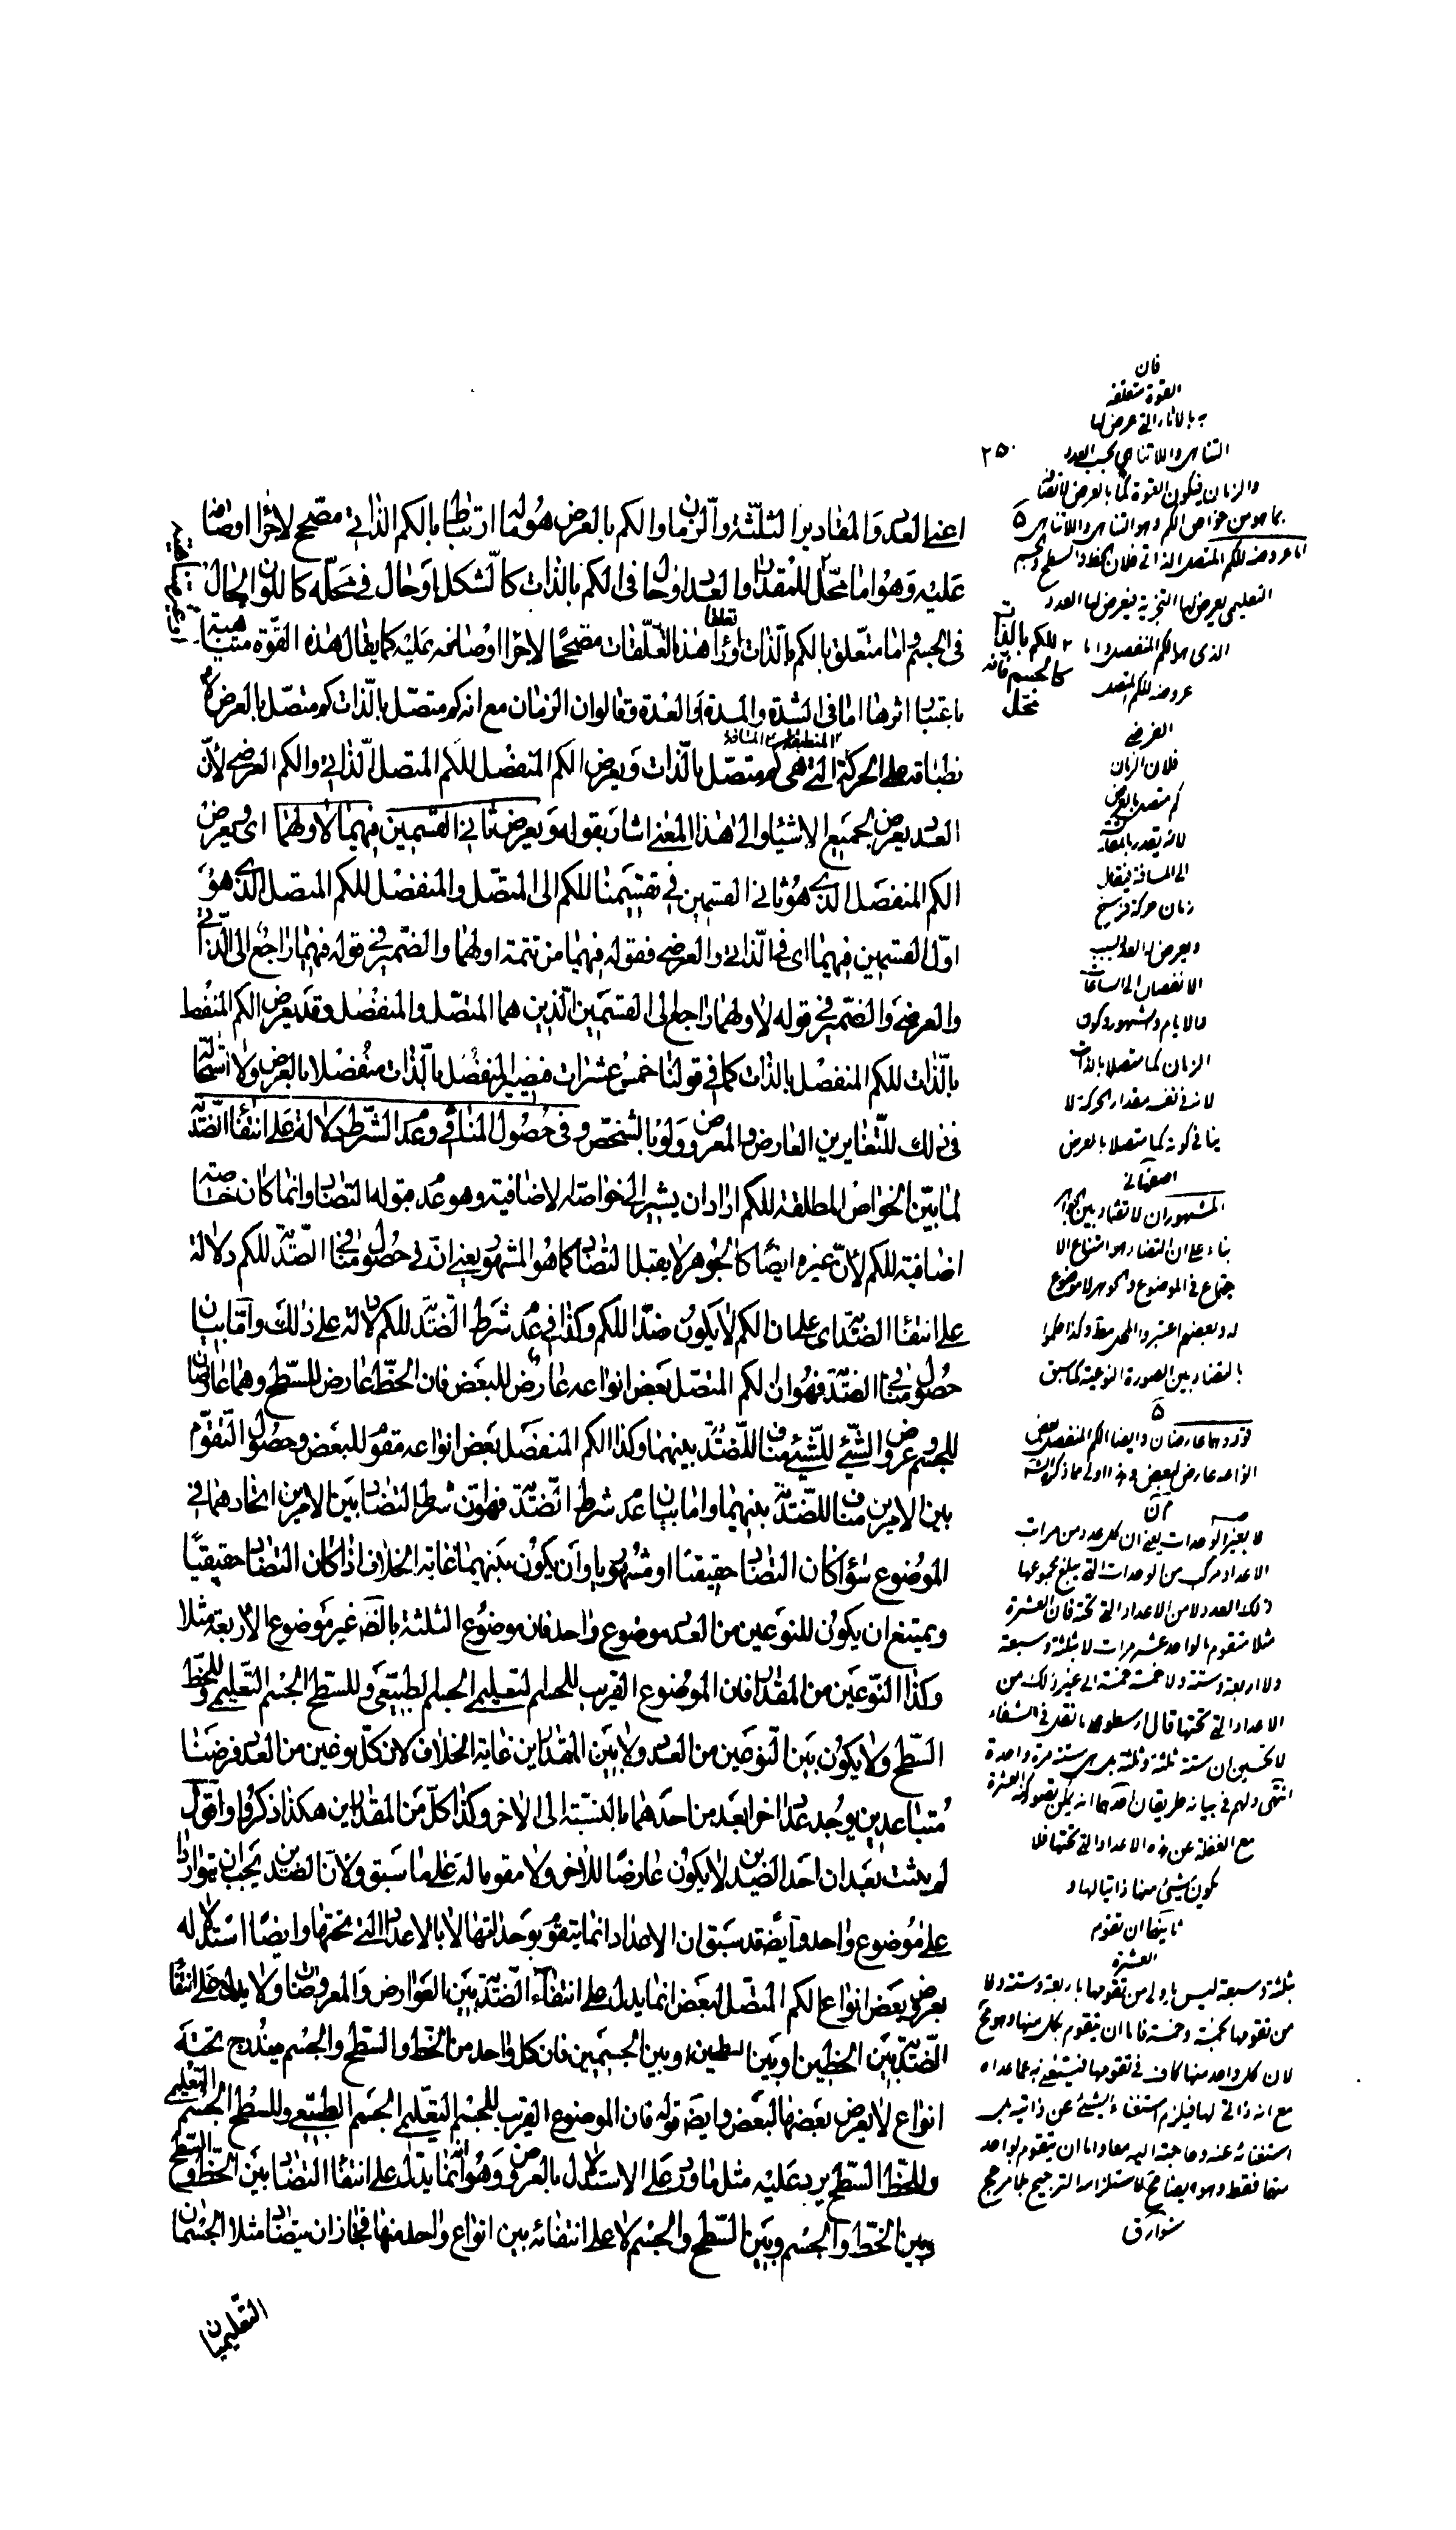 ٢٥٠
اعنى العدد والمقادير الثلثة والزمان واما الكم بالعرض هو ما له ارتباط بالكم الذاتى مصحح لاجراء اوصافه
عليه وهو اما محل للمقدار والعدد او حال فى الكم بالذات كالشكل او حال فى محله كاللون الحال
فى الجسم واما متعلق بالكم بالذات تعلقا وراء هذه التعلقات مصححا لاجراء اوصافه عليه كما يقال هذه القوة متناهية
باعتبار اثرها اما فى الشدة والمدة او العدة وقالوا ان الزمان مع انه كم متصل بالذات كم متصل بالعرض
نطباقه على الحركة المنطبقة على المسافة التى هى كم متصل بالذات ويعرض الكم المنفصل للكم المتصل الذاتى والكم العرضى لان
العدد يعرض لجميع الاشياء والى هذا المعنى اشار بقوله ويعرض ثانى القسمين فيهما لاولهما اى ويعرض
الكم المنفصل الذى هو ثانى القسمين فى تقسيمنا للكم الى المتصل والمنفصل للكم المتصل الذى هو
اول القسمين فيهما اى فى الذاتى والعرضى فقوله فيهما من تتمة اولهما والضمير فى قوله فيهما راجع الى الذاتى
والعرضى والضمير فى قوله لاولهما راجع الى القسمين الذين هما المتصل والمنفصل وقد يعرض الكم المنفصل
بالذات للكم المنفصل بالذات كما فى قولنا خمس عشرات فيصير المنفصل بالذات منفصلا بالعرض ولا استحالة
فى ذلك للتغاير بين العارض والمعروض ولو بالشخص وفى حصول المنافى وعدم الشرط دلالة على انتفاء الضدية
لما بين الخواص المطلقة للكم اراد ان يشير الى خواصه الاضافية وهو عدم قبوله التضاد وانما كان خاصته
اضافية للكم لان غيره ايضا كالجوهر لا يقبل التضاد كما هو المشهور يعنى ان فى حصول منافى الضدية للكم دلالة
على انتفاء الضدية اى على ان الكم لا يكون ضدا للكم وكذا فى عدم شرط الضدية للكم دلالة على ذلك واما بيان
حصول منافى الضدية فهو ان الكم المتصل بعض انواعه عارض للبعض فان الخط عارض للسطح وهما عارضان
للجسم وعروض الشئ للشئ مناف للضدية بينهما وكذا الكم المنفصل بعض انواعه مقوم للبعض وحصول التقوم
بين الامرين مناف للضدية بينهما واما بيان عدم شرط الضدية فهو ان شرط التضاد بين الامرين اتحادهما فى
الموضوع سواء كان التضاد حقيقيا او مشهوريا وان يكون بينهما غاية الخلاف اذا كان التضاد حقيقيا
ويمتنع ان يكون للنوعين من العدد موضوع واحد فان موضوع الثلثة بالضرورة غير موضوع الاربعة مثلا
وكذا النوعين من المقدار فان الموضوع القريب للجسم التعليمى الجسم الطبيعى وللسطح الجسم التعليمى وللخط
السطح ولا يكون بين النوعين من العدد ولا بين المقدارين غاية الخلاف لان كل نوعين من العدد فرضنا
متباعدين يوجد عدد اخر ابعد من احدهما بالنسبة الى الاخر وكذا كل من المقدارين هكذا ذكروا واقول
لم يثبت بعد ان احد الضدين لا يكون عارضا للاخر ولا مقوما له على ما سبق ولان الضدين يجب ان يتواردا
على موضوع واحد وايضا قد سبق ان الاعداد انما يتقوم بوحداتها لا بالاعداد التى تحتها وايضا استدلاله
بعروض بعض انواع الكم المتصل لبعض انما يدل على انتفاء الضدية بين العوارض والمعروضات ولا يدل على انتفاء
الضدية بين الخطين وبين السطحين وبين الجسمين فان كل واحد من الخط والسطح والجسم مندرج تحته
انواع لا يعرض بعضها لبعض وايضا قوله فان الموضوع القريب للجسم التعليمى الجسم الطبيعى وللسطح الجسم التعليمى
وللخط السطح يرد عليه مثل ما ورد على الاستدلال بالعروض وهو انه انما يدل على انتفاء التضاد بين الخط والسطح
وبين الخط والجسم وبين السطح والجسم لا على انتفائه بين انواع واحد منها فجاز ان يتضاد مثلا الجسمان
التعليميان
فان
القوة متعلقة
بالاثار التى عرض لها
التناهى واللاتناهى بحسب العدد
والزمان فيكون القوة كما بالعرض لاتصافها
بما هو من خواص الكم وهو التناهى واللاتناهى
اما عروضه للكم المتصل الذاتى فلان الخط والسطح والجسم
التعليمى يعرض لها التجزية فيعرض لها العدد
الذى هو الكم المنفصل واما
عروضه للكم المتصل
العرضى
فلان الزمان
كم متصل بالعرض
لانه يقدر بالمقايسة
الى المسافة فيقال
زمان حركة فرسخ
ويعرض له العدد بسبب
الانفصال الى الساعات
والايام والشهور وكون
الزمان كما متصلا بالذات
لانه فى نفسه مقدار الحركة لا
ينافى كونه كما متصلا بالعرض
اصفهانى
للكم بالذات
كالجسم فانه
محل
المشهور ان لا تضاد بين الجواهر
بناء على ان التضاد هو امتناع الا
جتماع فى الموضوع والجوهر لا موضوع
له وبعضهم اعتبروا المحل مطلقا وكذا حكموا
بالتضاد بين الصورة النوعية كما سبق
قوله وهما عارضان وايضا الكم المنفصل بعض
انواعه عارض لبعض وهذا اولى مما ذكره الشارح
لا بغير الوحدات يعنى ان كل عدد من مراتب
الاعداد مركب من الوحدات التى مبلغ مجموعها
ذلك العدد لا من الاعداد التى تحته فان العشرة
مثلا متقوم بالواحد عشر مرات لا بثلثة وسبعة
ولا اربعة وستة ولا خمسة خمسة الى غير ذلك من
الاعداد التى تحتها قال ارسطو على ما نقل فى الشفاء
لا تحسبن ان ستة ثلثة وثلثة بل هى ستة مرة واحدة
انتهى ولهم فى بيانه طريقان احدهما انه يمكن تصور كنه العشرة
مع الغفلة عن هذه الاعداد التى تحتها فلا
يكون شئ منها ذاتيا لها و
ثانيهما ان تقوم
العشرة
بثلثة وسبعة ليس باولى من تقومها باربعة وستة ولا
من تقومها بخمسة وخمسة فاما ان يتقوم بكل منها وهو مح
لان كل واحد منها كاف فى تقومها فيستغنى به عما عداه
مع انه ذاتى لها فيلزم استغناء الشئ عن ذاتيه بل
استغنائه عنه وحاجته اليه معا واما ان يتقوم بواحد
منها فقط وهو ايضا مح لاستلزامه الترجيح بلا مرجح
شوارق